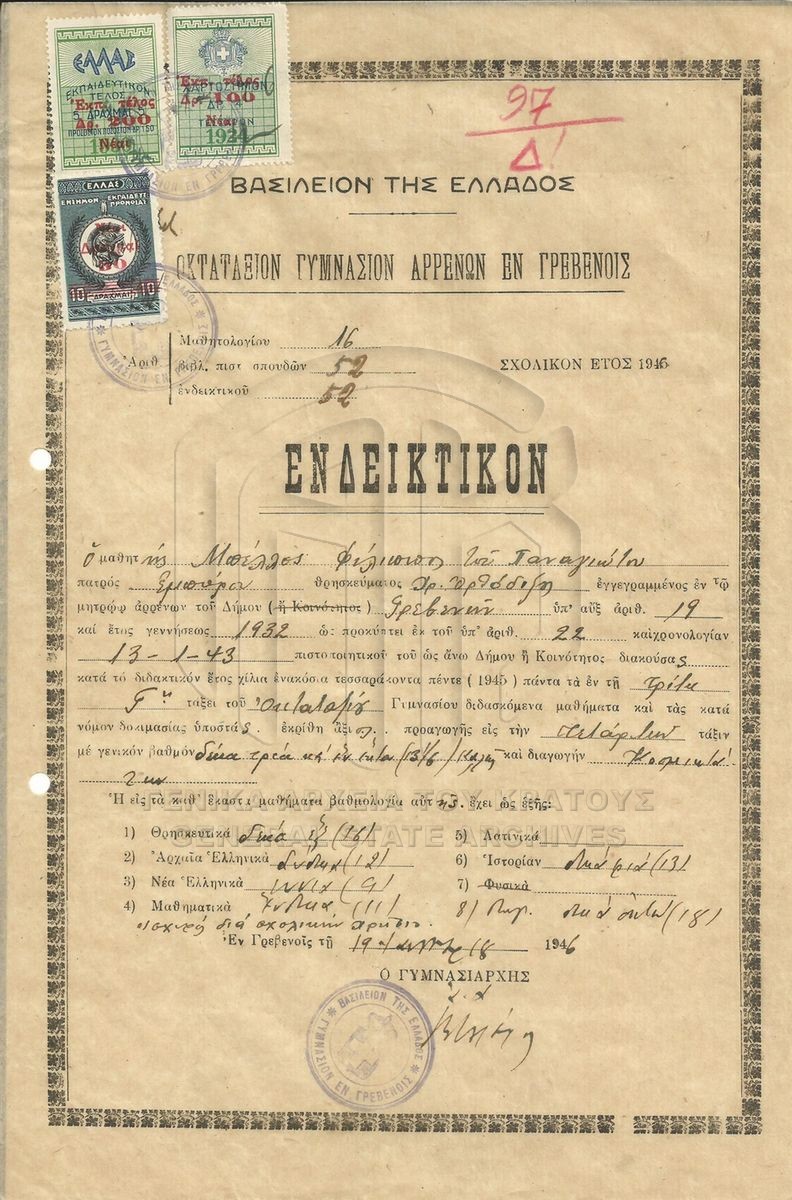 ΕΛΛΑΣ
ΕΚΠΑΙΔΕΥΤΙΚΟΝ
ΤΕΛΟΣ
5 ΔΡΑΧΜΑΙ 5
Ἐκπ. τέλος
Δρ. 200
Νέαι
ΧΑΡΤΟΣΗΜΟΝ
Ἐκπ. τέλος
Δρ. 100
Νέαι
ΕΛΛΑΣ
ΕΝΣΗΜΟΝ ΕΚΠΑΙΔΕΥΤ
ΠΡΟΝΟΙΑΣ
50
10 ΔΡΑΧΜΑΙ 10
97
Δ!
ΒΑΣΙΛΕΙΟΝ ΤΗΣ ΕΛΛΑΔΟΣ
ΟΚΤΑΤΑΞΙΟΝ ΓΥΜΝΑΣΙΟΝ ΑΡΡΕΝΩΝ ΕΝ ΓΡΕΒΕΝΟΙΣ
Μαθητολογίου 16
Ἀριθ βιβλ. πιστ σπουδῶν 52 ΣΧΟΛΙΚΟΝ ΕΤΟΣ 1945
ἐνδεικτικοῦ 52
ΕΝΔΕΙΚΤΙΚΟΝ
Ὁ μαθητὴς Μπέλλος Φίλιππος τοῦ Παναγιώτου
πατρὸς Ἐμπόρου θρησκεύματος Χρ. Ὀρθόδοξ ἐγγεγραμένος ἐν τῷ
μητρώῳ ἀρρένων τοῦ Δήμου (ἢ Κοινότητος) Γρεβενῶν ὑπ' αὔξ ἀριθ. 19
καὶ ἔτος γεννήσεως 1932 ὡς προκύπτει ἐκ τοῦ ὑπ' ἀριθ. 22 καὶχρονολογίαν
13-1-43 πιστοποιητικοῦ τοῦ ὡς ἄνω Δήμου ἢ Κοινότητος διακούσας
κατὰ τὸ διδακτικὸν ἔτος χίλια ἐνακόσια τεσσαράκοντα πέντε (1945) πάντα τὰ ἐν τῇ Τρίτῃ
Γῃ τάξει τοῦ Ὀκταταξίου Γυμνασίου διδασκόμενα μαθήματα καὶ τὰς κατὰ
νόμον δοκιμασίας ὑποστὰς. ἐκρίθη ἄξιος προαγωγῆς εἰς τὴν τετάρτην τάξιν
μὲ γενικὸν βαθμὸν δέκα τρία καὶ ἓν ἕκτον (13 1/6) Καλῶς καὶ διαγωγὴν Κοσμιωτά-
την
Ἡ εἰς τὰ καθ' ἕκαστα μαθήματα βαθμολογία αὐτῆς ἔχει ὡς ἑξῆς:
ΓΕΝΙΚΑ ΑΡΧΕΙΑ ΤΟΥ ΚΡΑΤΟΥΣ
GENERAL STATE ARCHIVES
1) Θρησκευτικὰ δέκα ἓξ (16) 5) Λατινικὰ
2) Ἀρχαῖα Ἑλληνικὰ δώδεκα (12) 6) Ἱστορίαν δέκα τρία (13)
3) Νέα Ἑλληνικὰ ἐννέα (9) 7) Φυσικὰ
4) Μαθηματικὰ ἕνδεκα (11) 8) διαγ. δέκα ὀκτὼ (18)
ἰσχύει διὰ σχολικὴν χρῆσιν.
Ἐν Γρεβενοῖς τῇ 19 1946
Ο ΓΥΜΝΑΣΙΑΡΧΗΣ
ΒΑΣΙΛΕΙΟΝ ΤΗΣ ΕΛΛΑΔΟΣ
ΓΥΜΝΑΣΙΟΝ ΕΝ ΓΡΕΒΕΝΟΙΣ